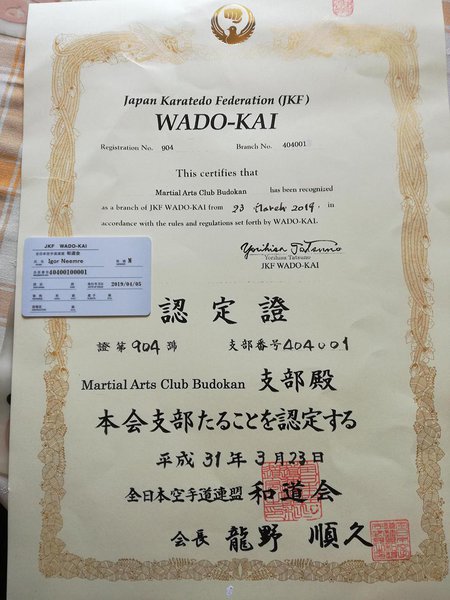 Japan Karatedo Federation (JKF)
WADO-KAI
Registration No. 904 Branch No. 404001
This certifies that
Martial Arts Club Budokan has been recognized
as a branch of JKF WADO-KAI from 23 March 2019. in
accordance with the rules and regulations set forth by WADO-KAI.
Yorihisa Tatsuno
JKF WADO-KAI
JKF WADO-KAI
全日本空手道連盟 和道会
Igor Neemre
40400100001
2019/04/05
認定證
證第904號 支部番号404001
Martial Arts Club Budokan 支部殿
本会支部たることを認定する
平成31年3月23日
全日本空手道連盟 和道会
会長 龍野 順久